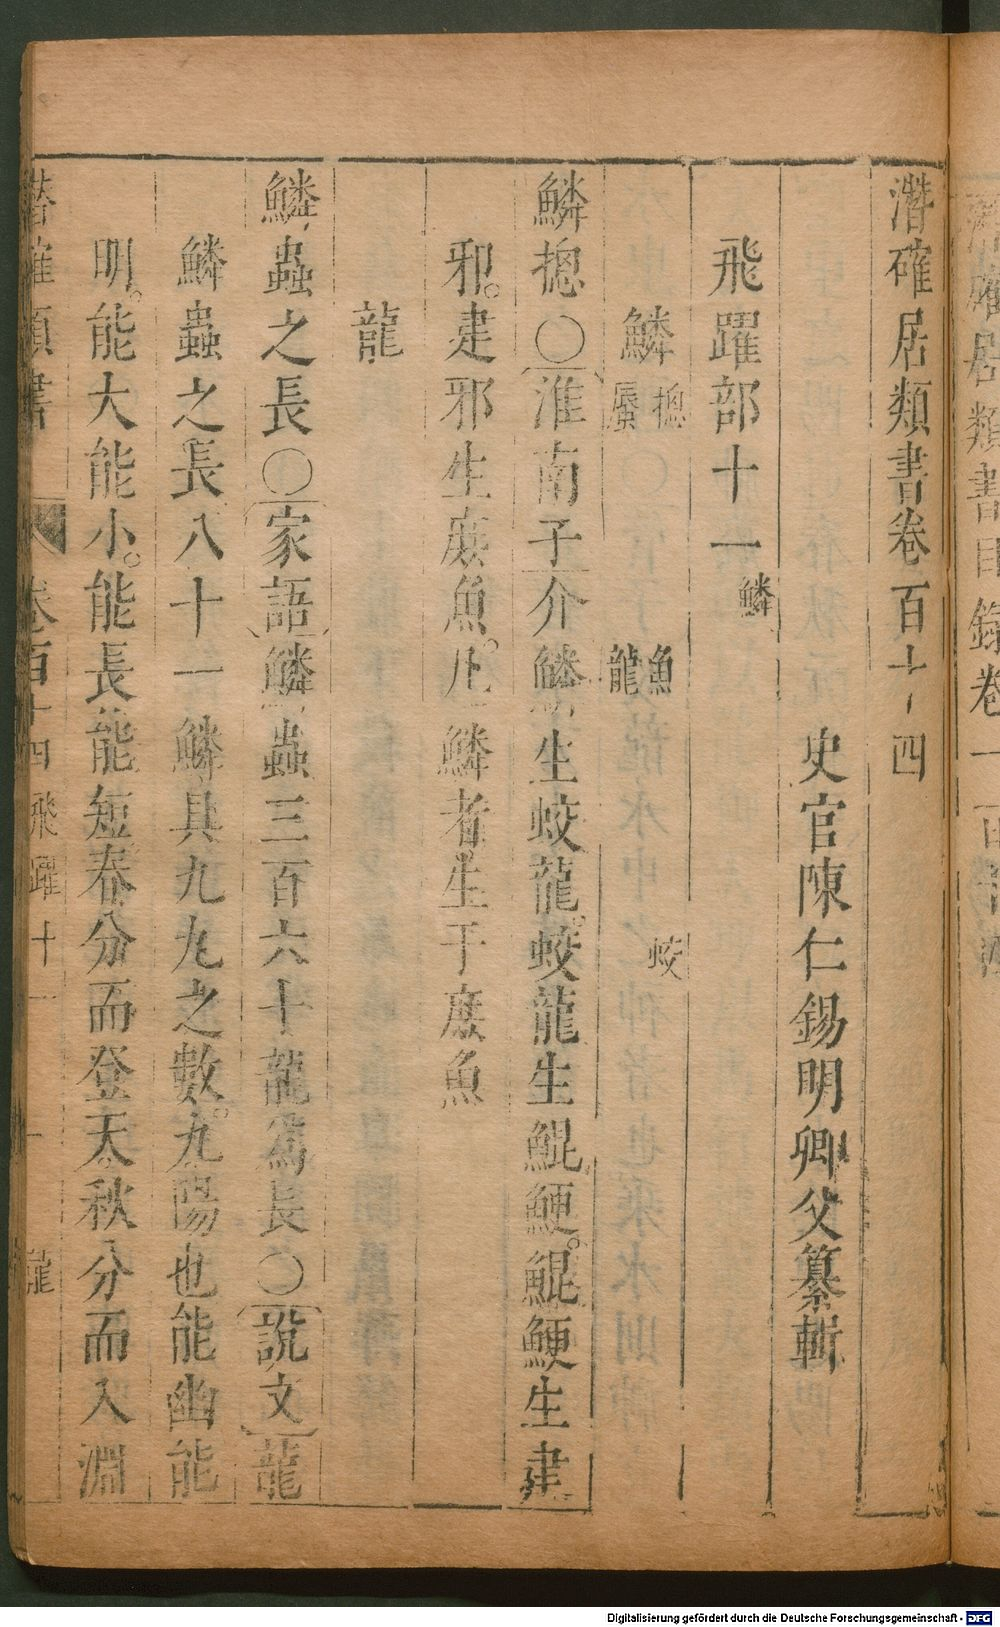 潛確居類書卷百十四
史官陳仁錫明卿父纂輯
飛躍部十一 鱗
鱗 摠 蜃 魚 龍 蛟
鱗摠〇淮南子介鱗生蛟龍。蛟龍生鯤鯁。鯤鯁生建
邪。建邪生庻魚。凡鱗者生于庻魚
龍
鱗蟲之長〇家語鱗蟲三百六十龍爲長〇說文龍
鱗蟲之長八十一鱗具九九之數。九陽也能幽能
明。能大能小。能長能短春分而登天。秋分而入淵
潛確類書 卷百十四 飛躍十一 一 龍
Digitalisierung gefördert durch die Deutsche Forschungsgemeinschaft - DFG